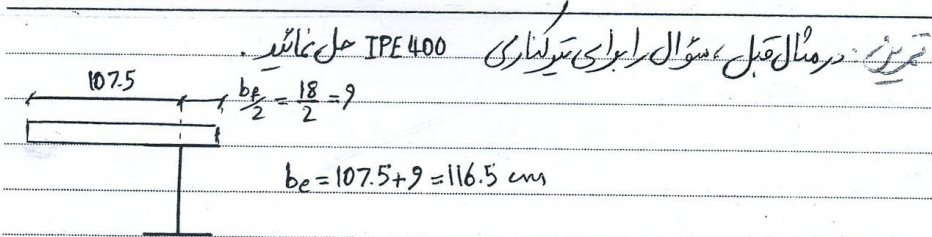 تمرین: در مثال قبل، سؤال را برای تیر کناری IPE400 حل نمائید.
107.5
bf/2 = 18/2 = 9
be = 107.5+9 = 116.5 cm